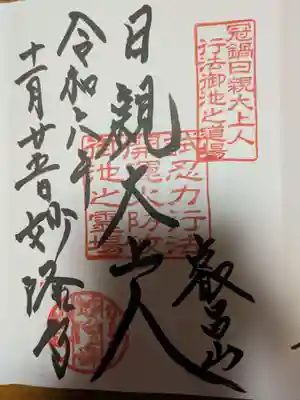 冠鍋日親大上人
行法御池之道場
叡昌山
日親大上人
試忍力行法
御池之霊場
令和六年
十一月廿五日
妙隆寺